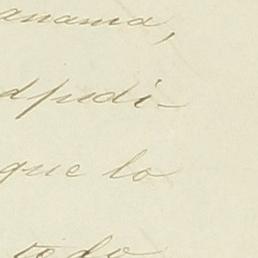 anama,
dpudi-
que lo
todo